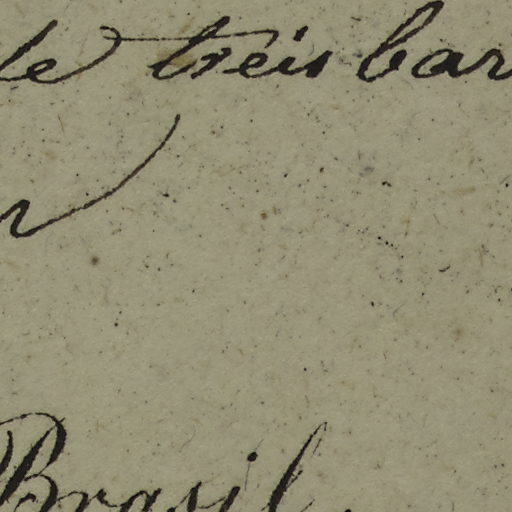 de treis bar
Brasil.